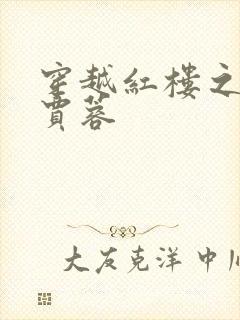 穿越紅樓之
賈蓉
大友克洋 中川